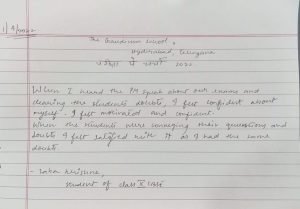 1/4/2022
The Gaudium School,
Hyderabad, Telangana
परीक्षा पे चर्चा 2022
When I heard the PM speak about our exams and
clearing the students doubts, I felt confident about
myself. I felt motivated and confident.
When the students were conveying their questions and
doubts I felt satisfied with it as I had the same
doubts.
- Krishna,
student of class X CBSE